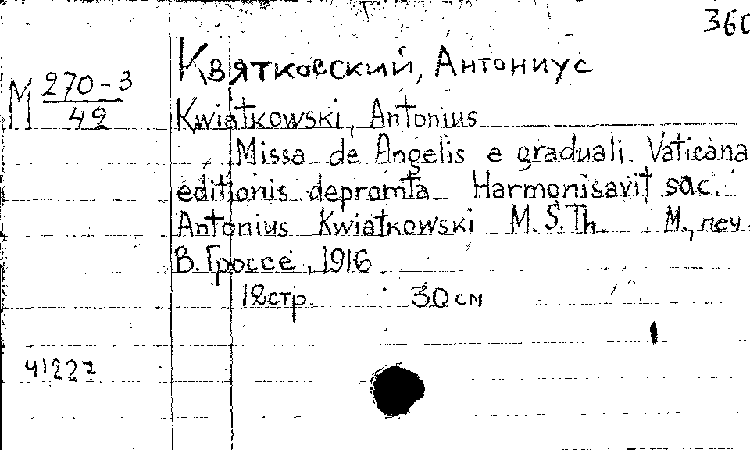 360
Квятковский, Антониус
М 270-3
42
Kwiatkowski, Antonius
Missa de Angelis e graduali Vaticana
editionis deprompta Harmonisavit sac.
Antonius Kwiatkowski M. S. Th. М., печ.
В. Гроссе, 1916
12 стр. 30 см
41227